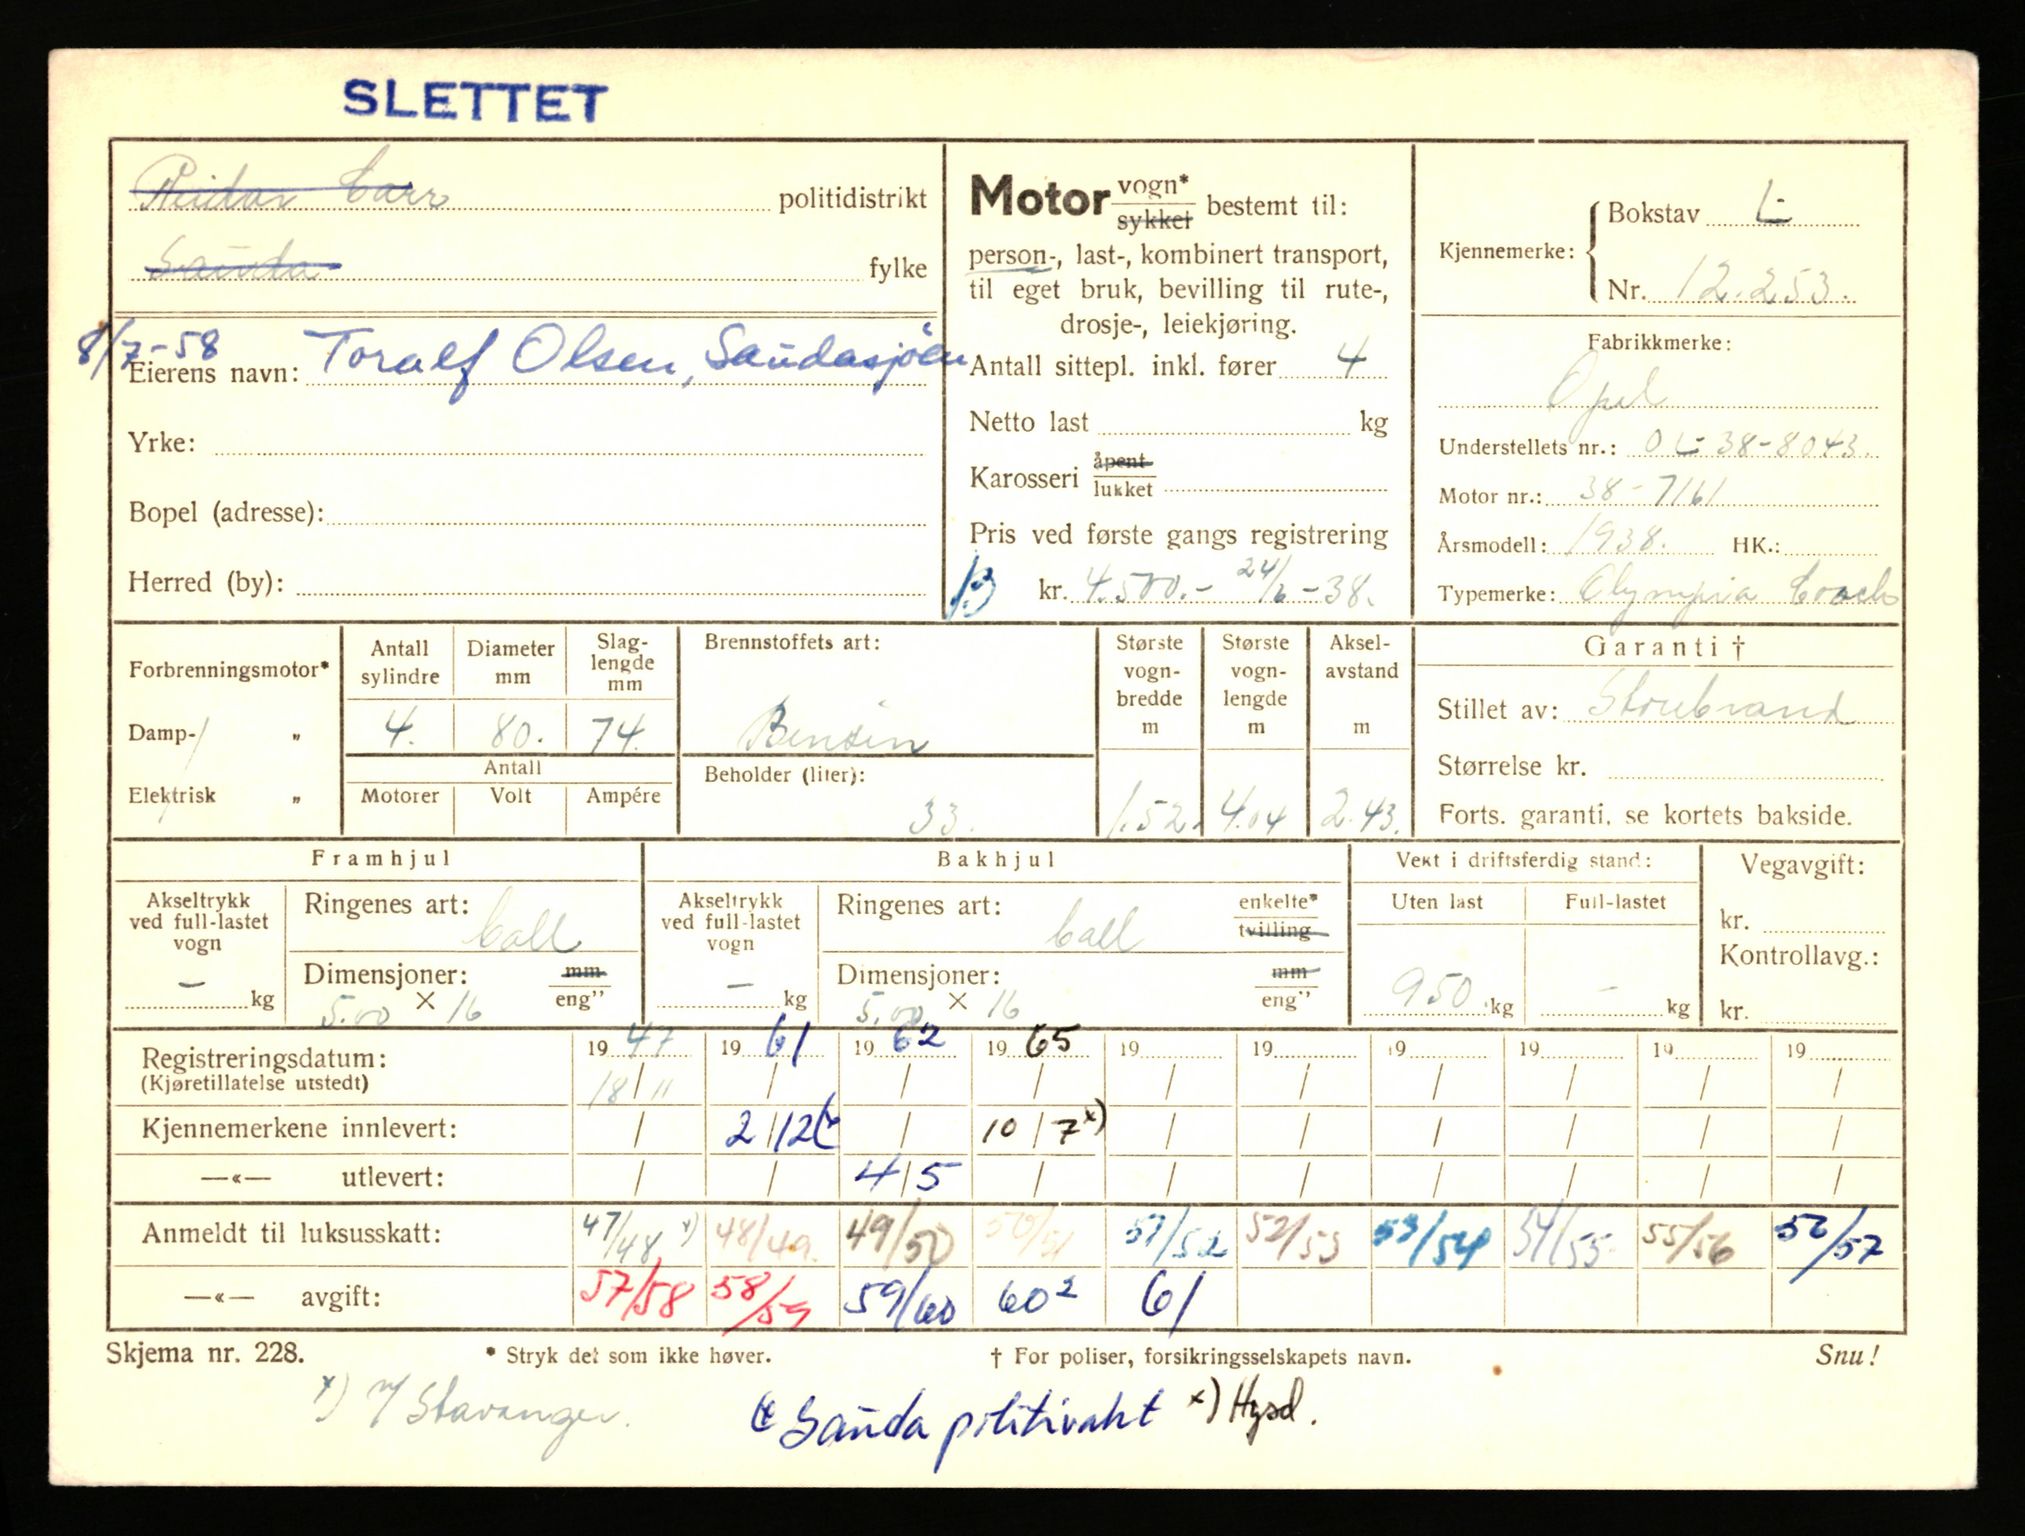 SLETTET
Reidar Carr politidistrikt
Sauda fylke
8/7-58
Eierens navn: Toralf Olsen, Saudasjøen
Yrke:
Bopel (adresse):
Herred (by):
Motor vogn* sykkel bestemt til:
person-, last-, kombinert transport,
til eget bruk, bevilling til rute-,
drosje-, leiekjøring.
Antall sittepl. inkl. fører 4
Netto last kg
Karosseri åpent lukket
Pris ved første gangs registrering
kr. 4.500.- 24/6-38.
Kjennemerke: Bokstav L-
Nr. 12.253.
Fabrikkmerke:
Opel
Understellets nr.: OL-38-8043.
Motor nr.: 38-7161
Årsmodell: 1938. HK.:
Typemerke: Olympia Coach
Forbrenningsmotor*
Damp- „
Elektrisk „
Antall sylindre 4.
Diameter mm 80.
Slag-lengde mm 74.
Antall
Motorer Volt Ampére
Brennstoffets art:
Bensin
Beholder (liter):
33.
Største vogn-bredde m 1.52.
Største vogn-lengde m 4.04
Aksel-avstand m 2.43.
Garanti †
Stillet av: Storebrand
Størrelse kr.
Forts. garanti, se kortets bakside.
Framhjul
Akseltrykk ved full-lastet vogn – kg
Ringenes art: Coll
Dimensjoner: mm eng"
5.00 × 16
Bakhjul
Akseltrykk ved full-lastet vogn – kg
Ringenes art: Coll enkelte* tvilling
Dimensjoner: mm eng"
5.00 × 16
Vekt i driftsferdig stand:
Uten last Full-lastet
950 kg – kg
Vegavgift:
kr.
Kontrollavg.:
kr.
Registreringsdatum: 19 47 19 61 19 62 19 65 19 19 19 19 19 19
(Kjøretillatelse utstedt) 18/11 / / / / / / / / /
Kjennemerkene innlevert: / 2/12 (x / 10/7 x) / / / / / /
—«— utlevert: / / 4/5 / / / / / / /
Anmeldt til luksusskatt: 47/48 x) 48/49. 49/50 50/51 51/52 52/53 53/54 54/55 55/56 56/57
—«— avgift: 57/58 58/59 59/60 60² 61
Skjema nr. 228. * Stryk det som ikke høver. † For poliser, forsikringsselskapets navn. Snu!
x) Stavanger. (x Sauda politivakt x) Hgsd.